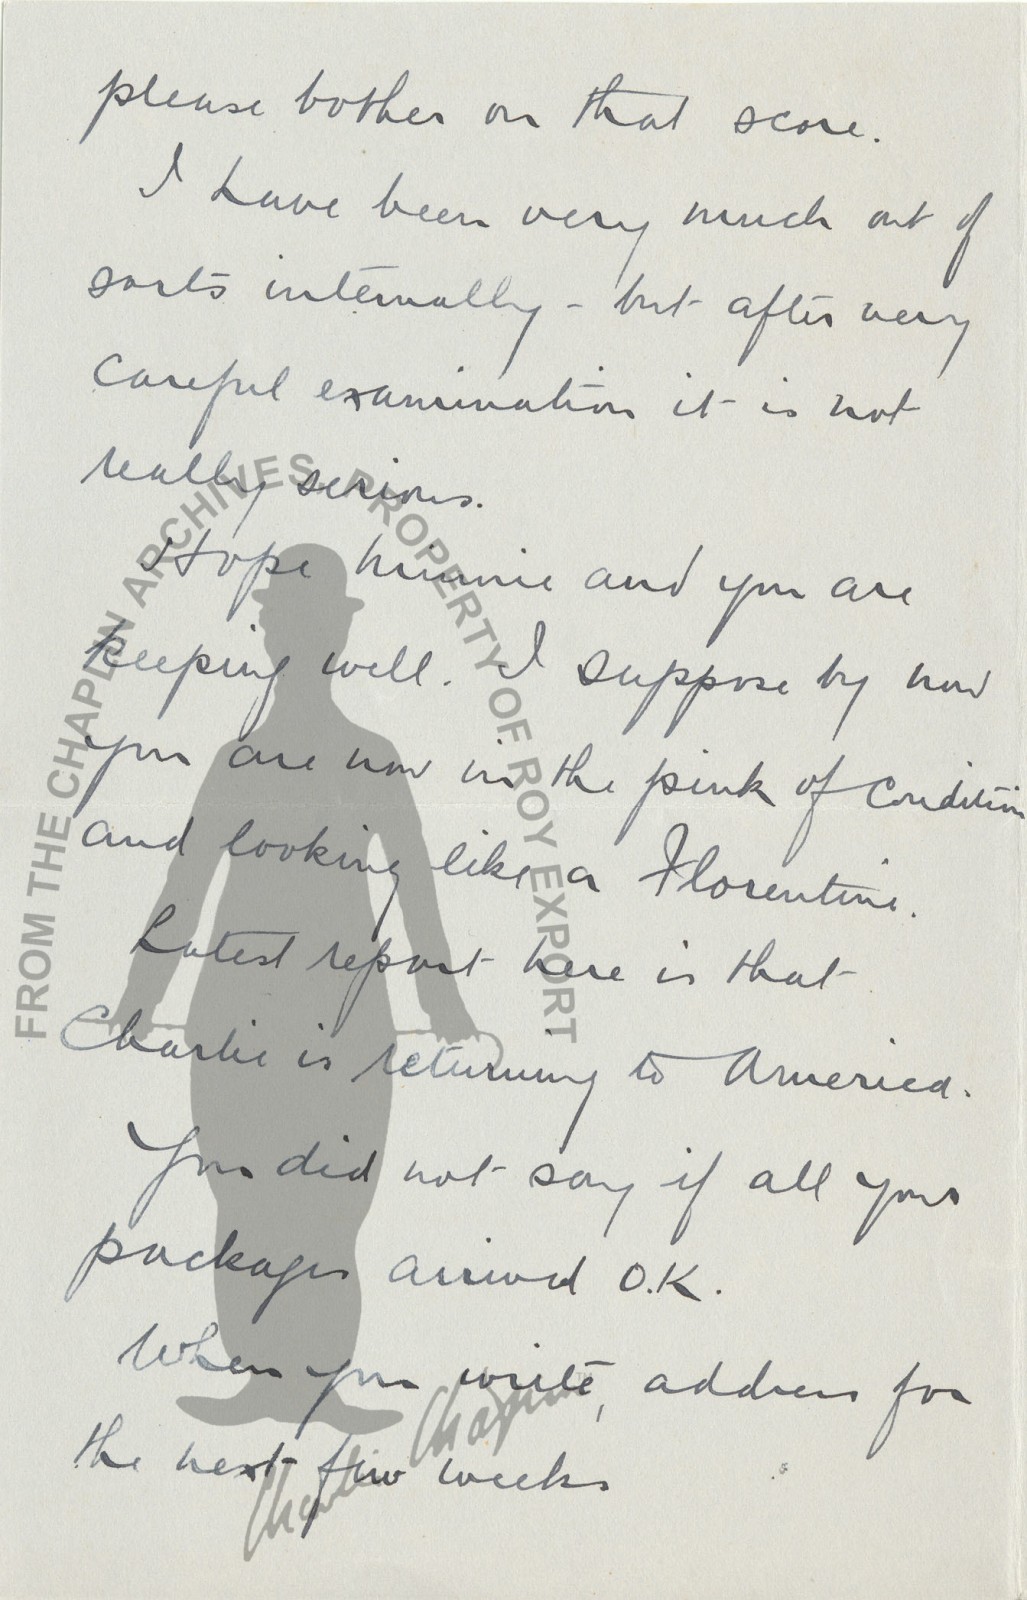 please bother on that score.
I have been very much out of
sorts internally - but after very
careful examination it is not
really serious.
Hope Minnie and you are
keeping well. I suppose by now
you are now in the pink of condition
and looking like a Florentine.
Latest report here is that
Charlie is returning to America.
You did not say if all your
packages arrived O.K.
When you write, address for
the next few weeks
FROM THE CHAPLIN ARCHIVES, PROPERTY OF ROY EXPORT
Charlie Chaplin